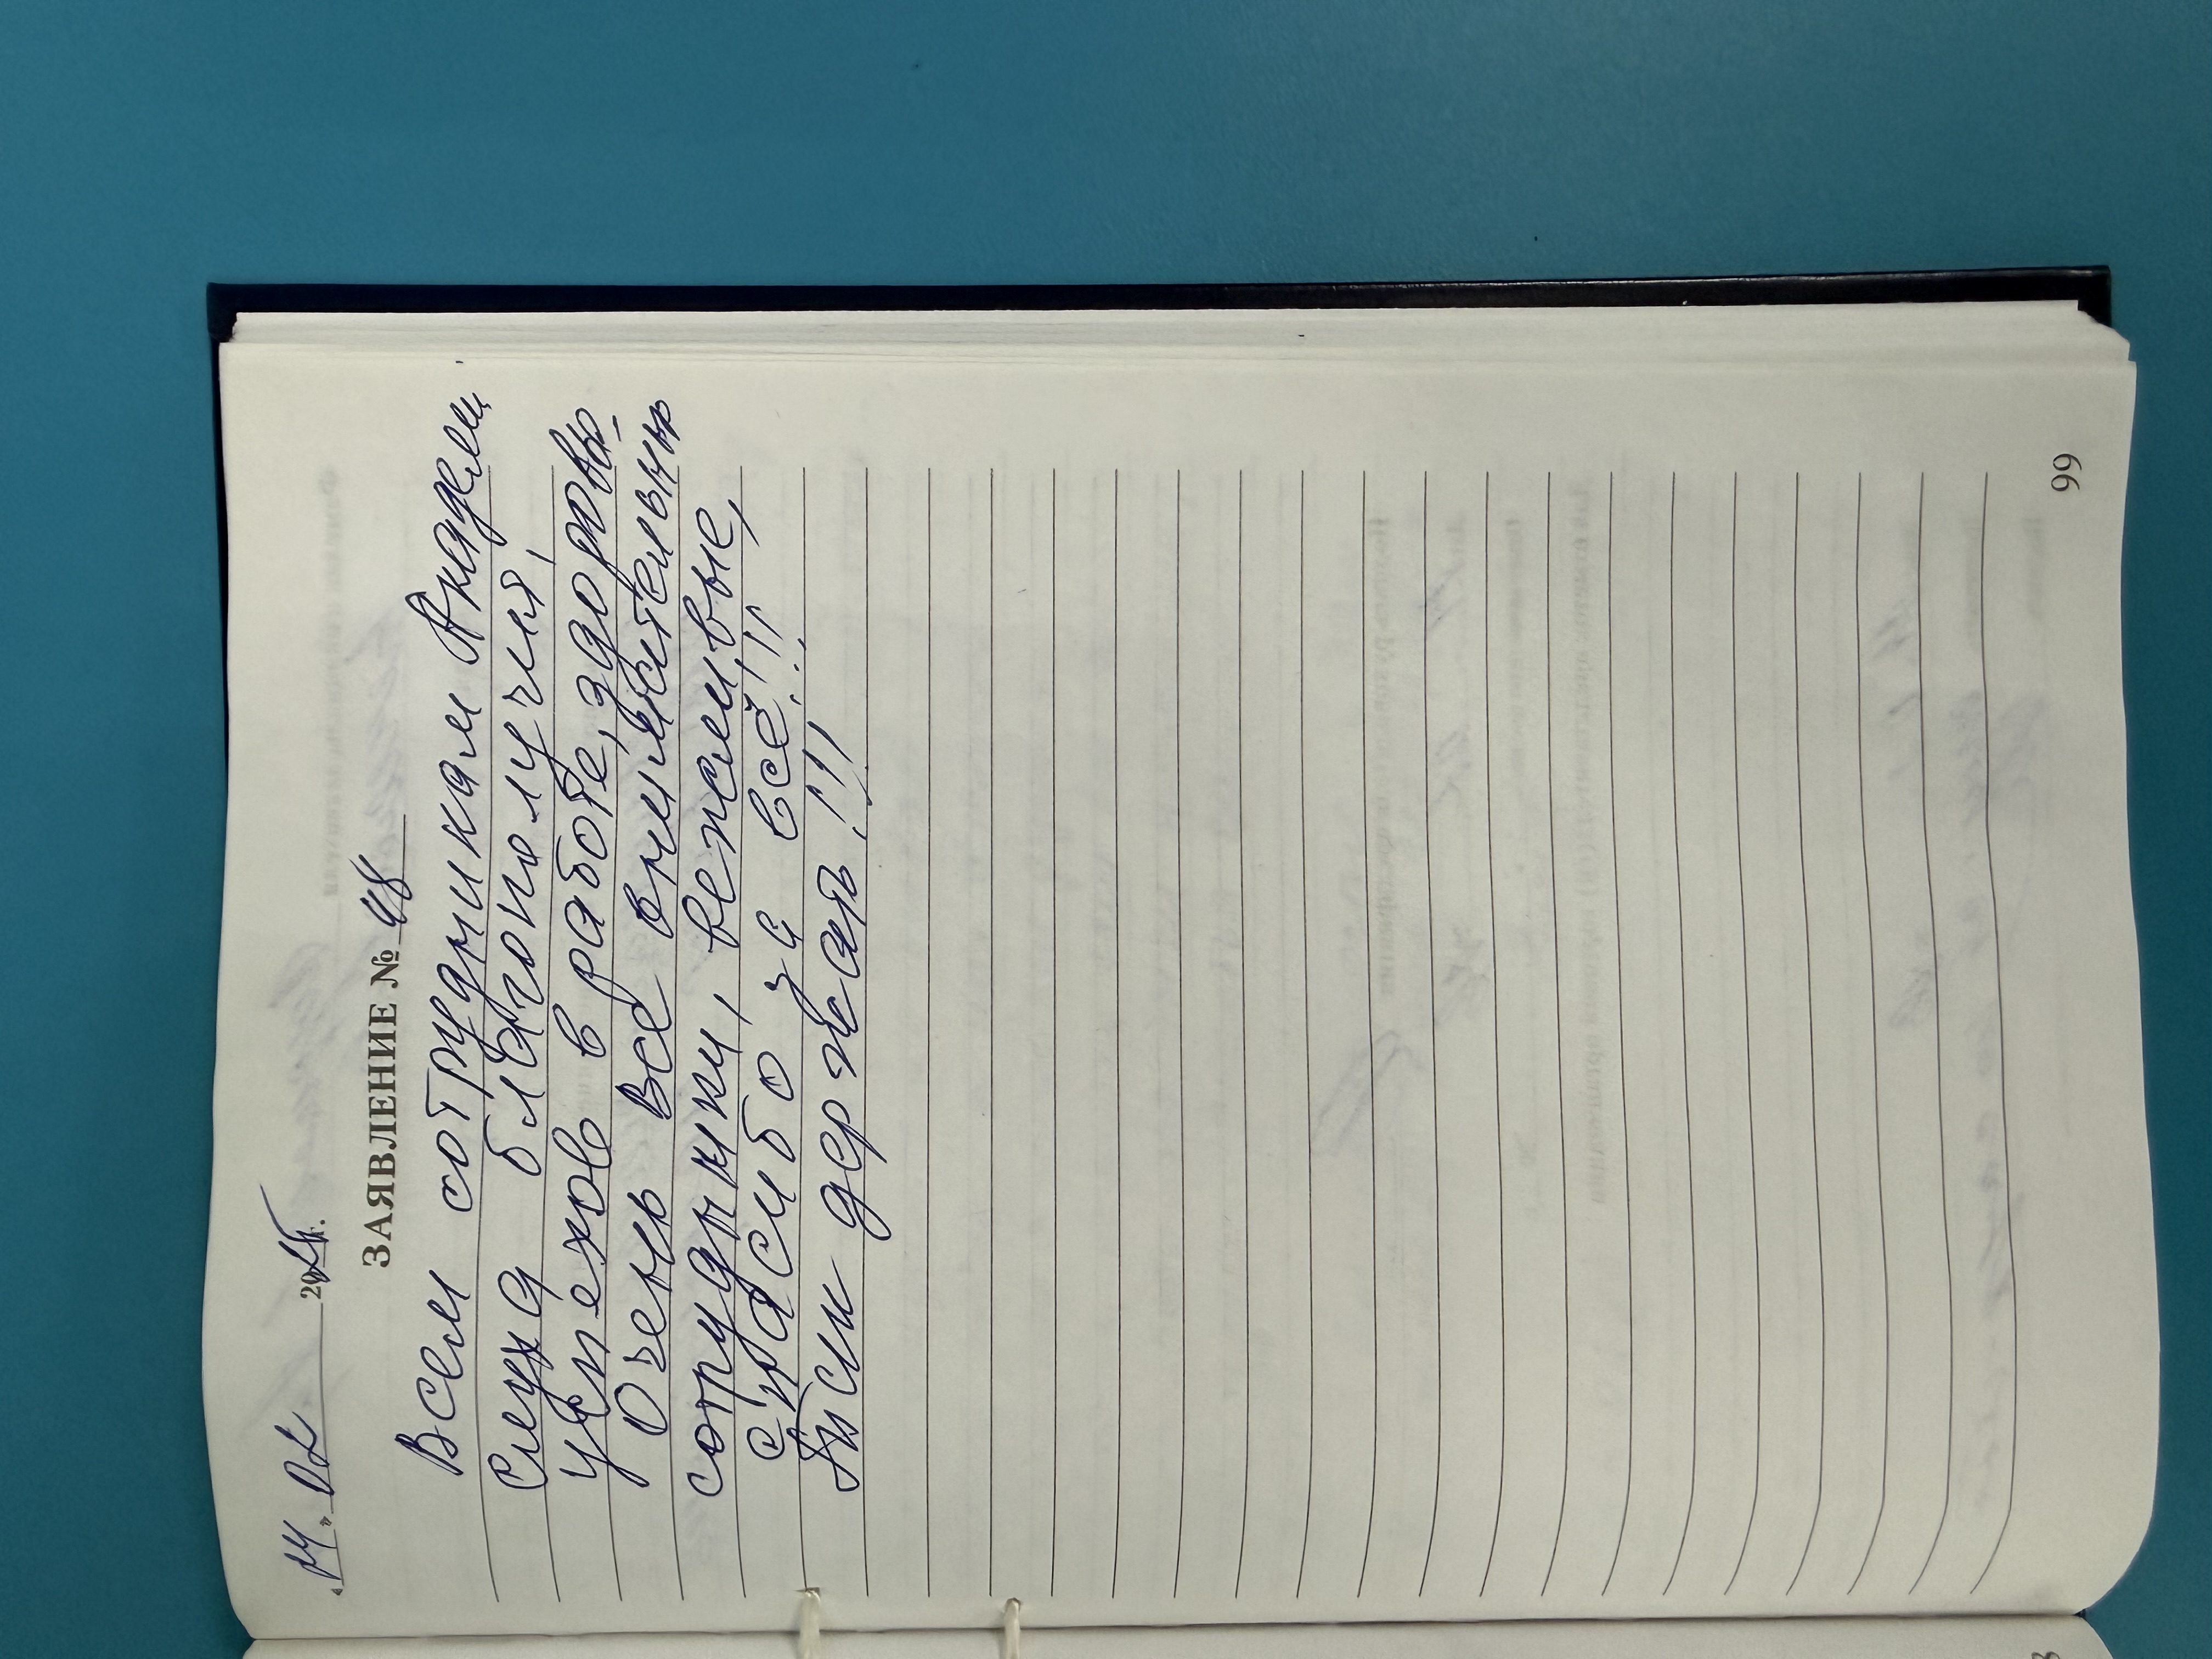 «14» 02 2025г.
ЗАЯВЛЕНИЕ № 48
Всем сотрудникам Академии
Слуха благополучия,
успехов в работе, здоровья.
Очень все внимательные
сотрудники, вежливые,
спасибо за всё!!!
Так держать!!!
99